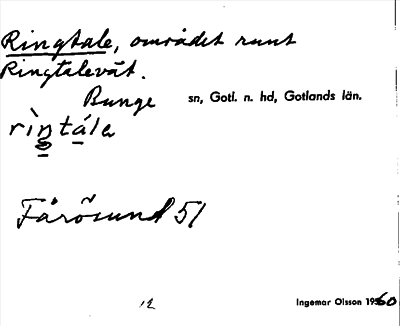 Ringtale, området runt
Ringtalevät.
Bunge sn, Gotl. n. hd, Gotlands län.
rìŋtála
Fårösund 51
12
Ingemar Olsson 1960